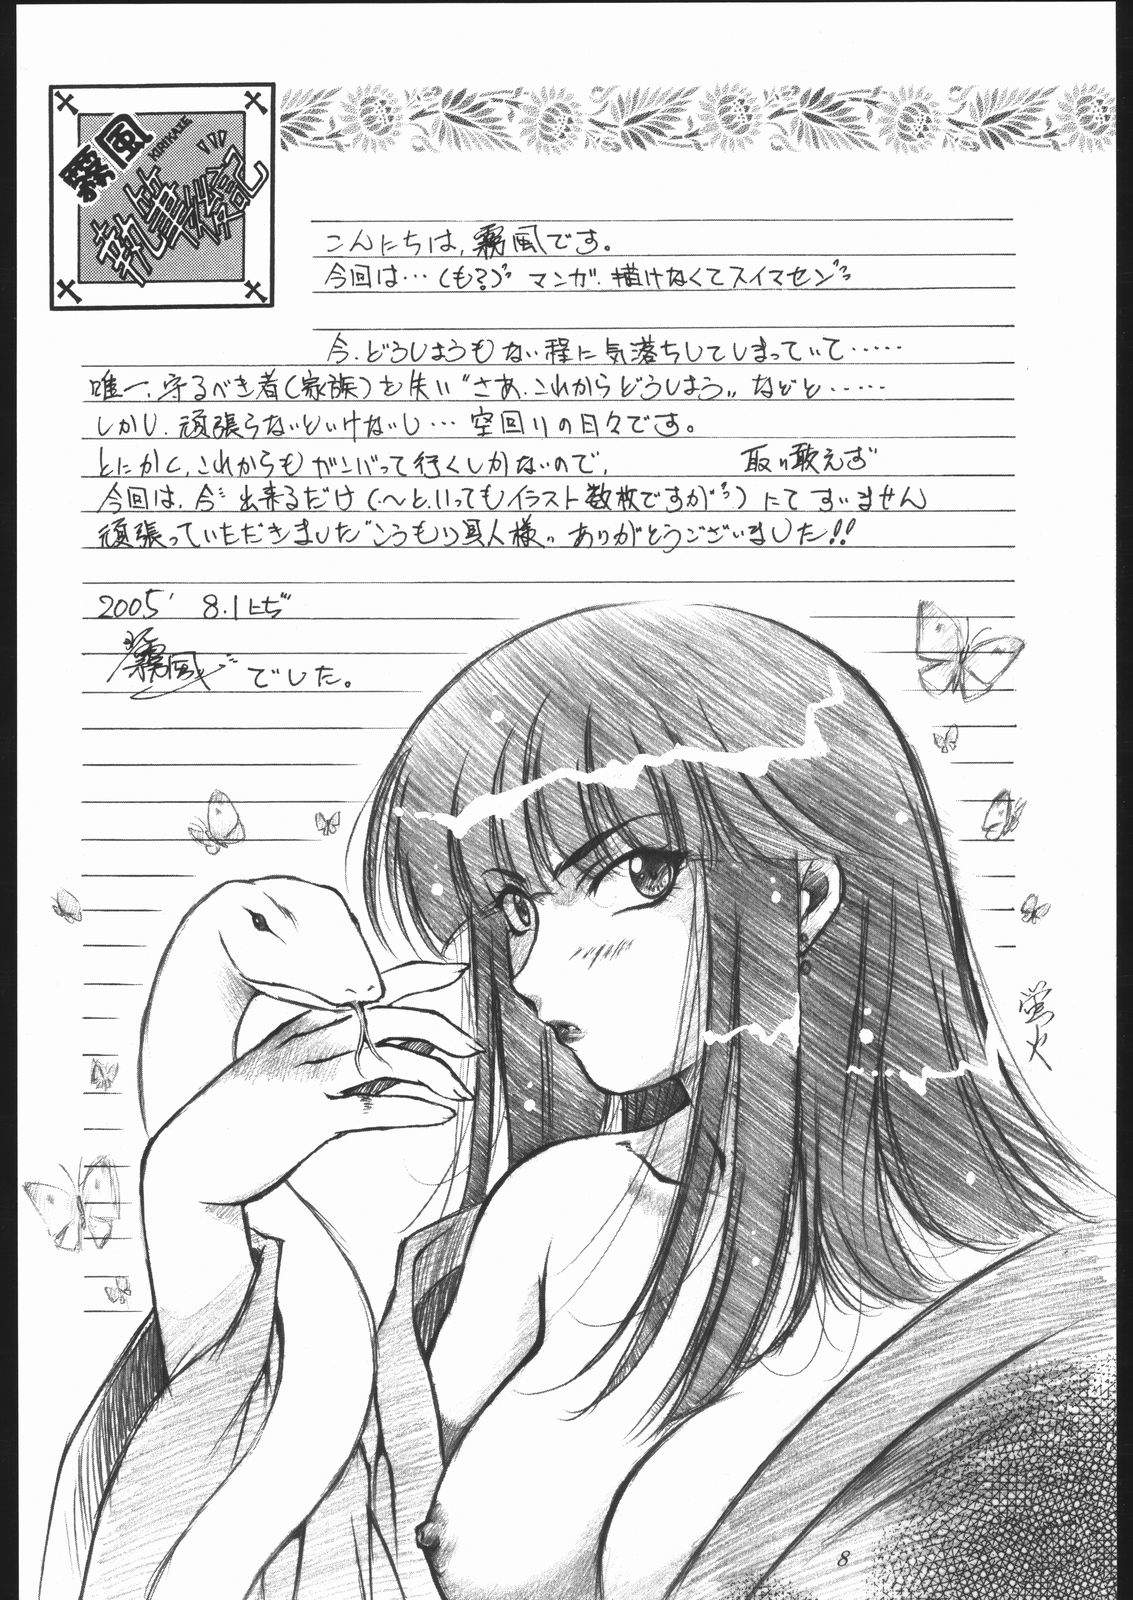 霧風
KIRIKAZE
執筆後記
こんにちは、霧風です。
今回は…(も?)゛マンガ、描けなくてスイマセン゛
今、どうしようもない程に気落ちしてしまっていて……
唯一、守るべき者(家族)を失い〝さあ、これからどうしよう〟などと……
しかし、頑張らないといけないし…空回りの日々です。
とにかく、これからもガンバって行くしかないので、 取り敢えず
今回は、今 出来るだけ(〜と、いってもイラスト数枚ですが゛)にて すいません
頑張っていただきました〝こうもり 様〟ありがとうございました!!
2005' 8.1にぢ
霧風 でした。
蛍火
8